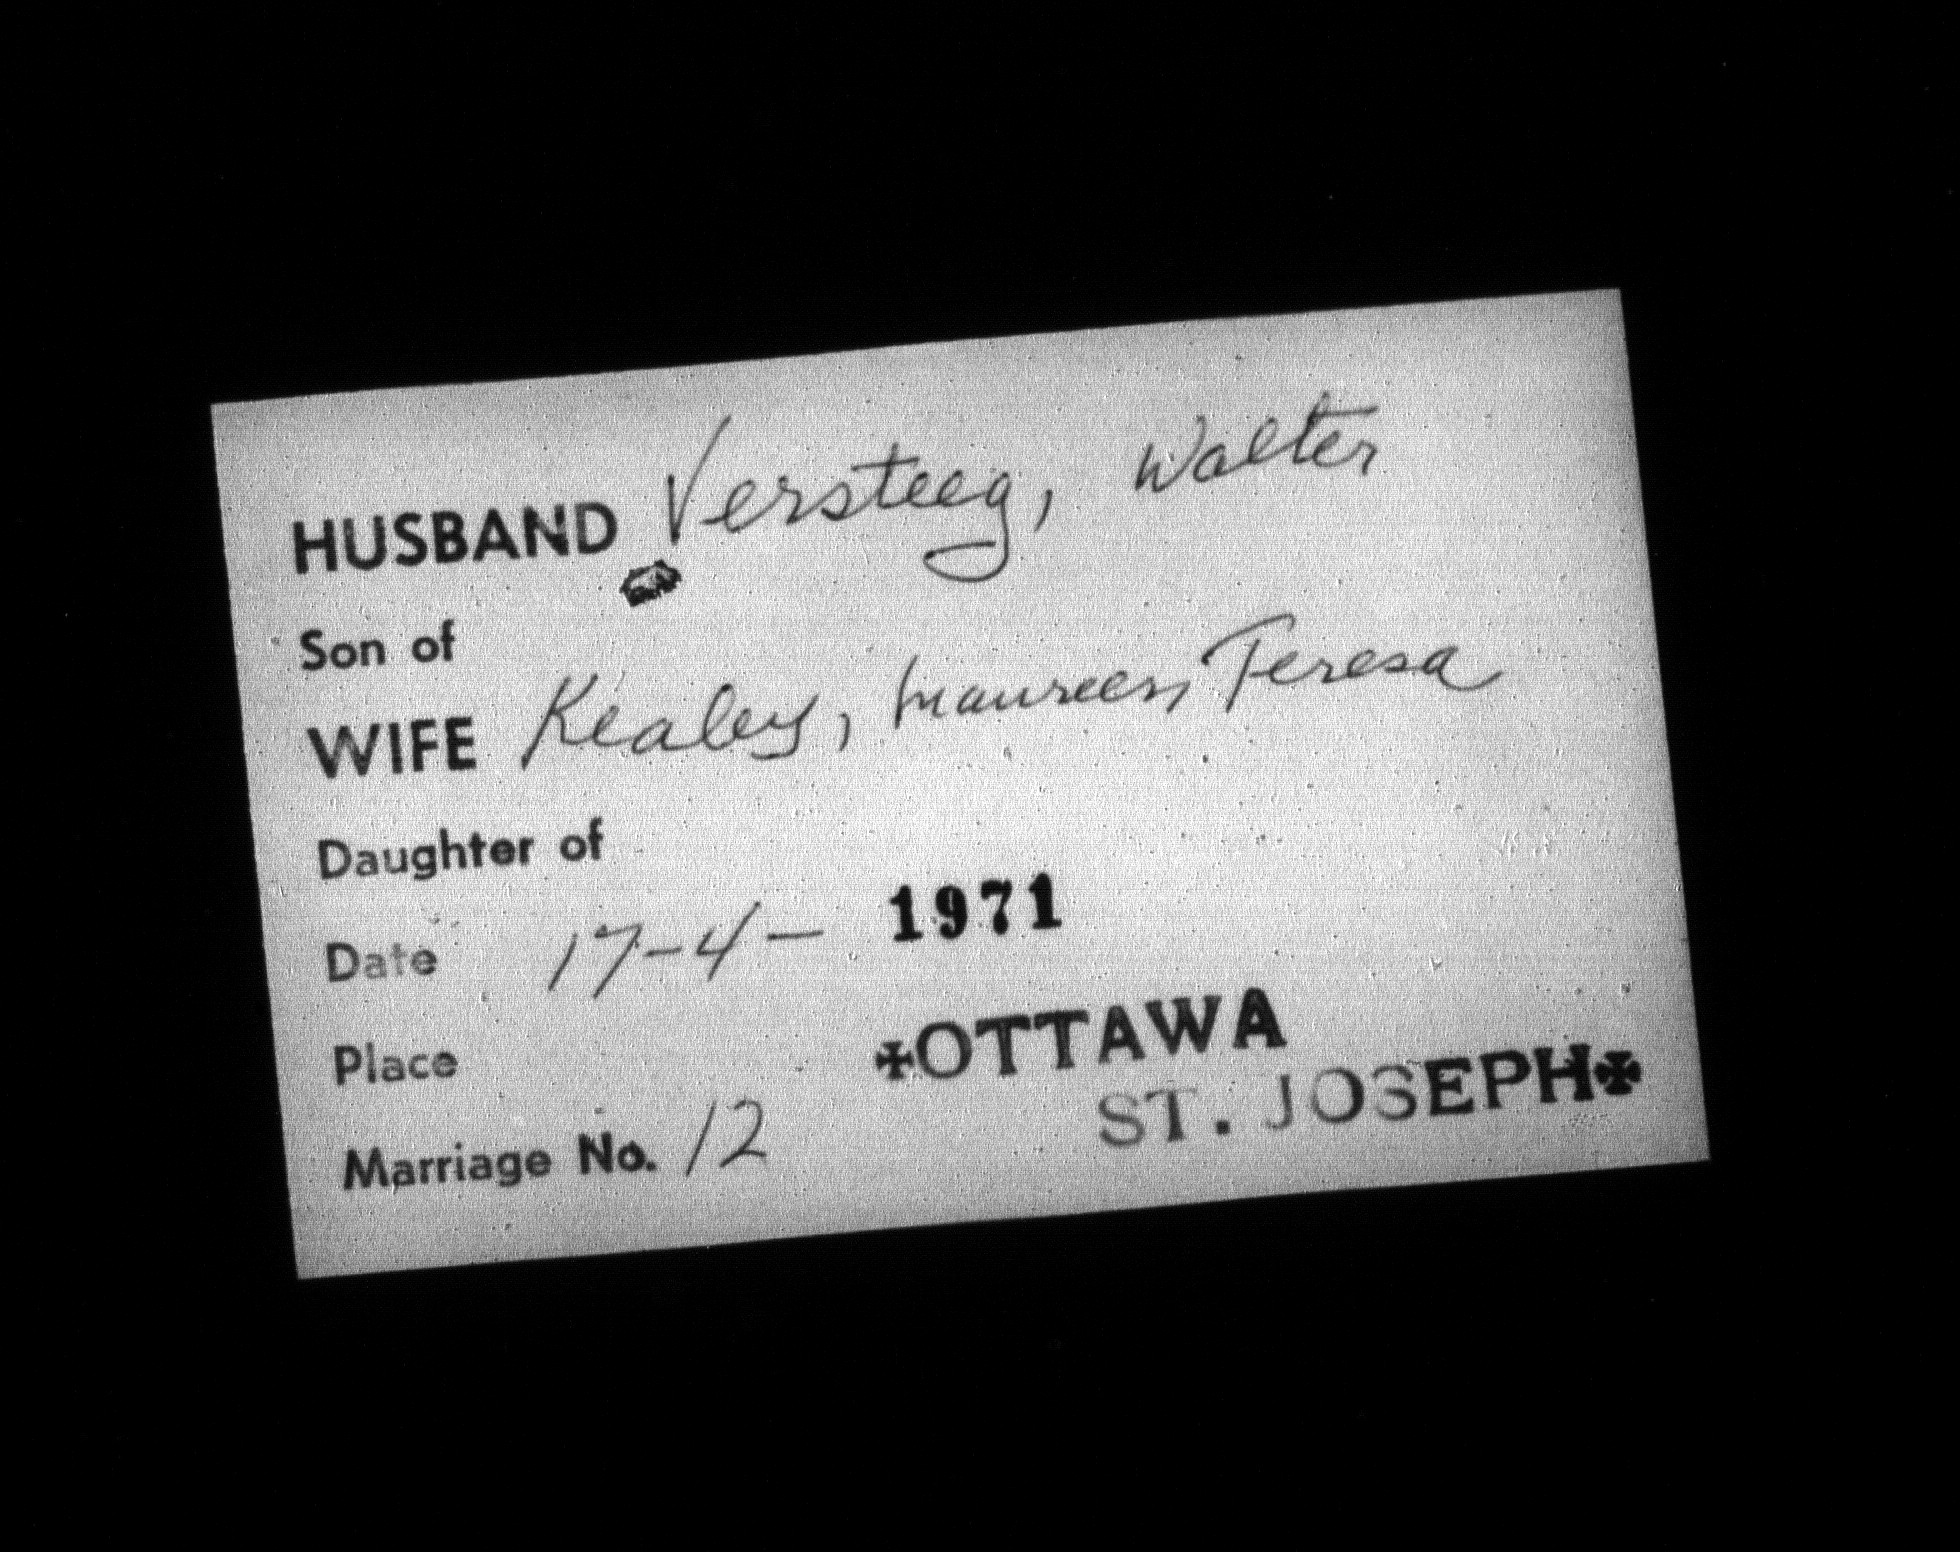 HUSBAND Versteeg, Walter
Son of
WIFE Kealey, Maureen Teresa
Daughter of
Date 17-4- 1971
Place ✠OTTAWA
ST. JOSEPH✠
Marriage No. 12